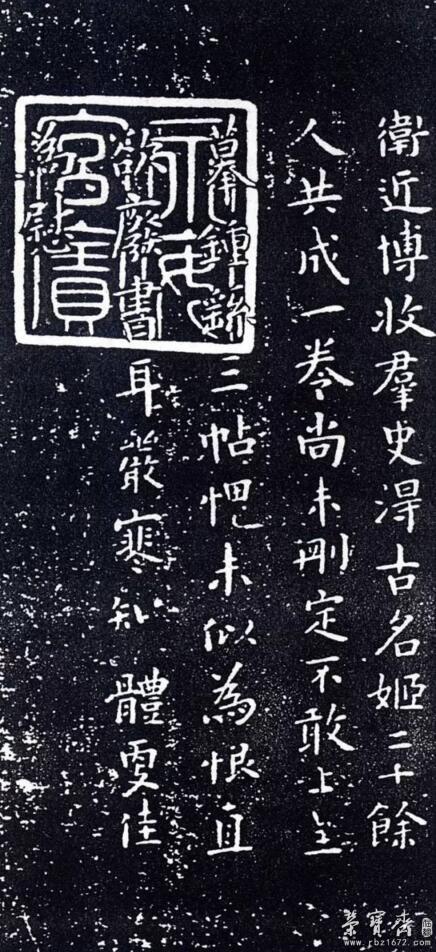 衛近博收羣史淂古名姬二十餘
人共成一卷尚未刪定不敢上呈
摹鍾繇三帖愧未似為恨直
欲廢書耳嚴寒知 體更佳
慰
榮寶齋
www.rbz1672.com